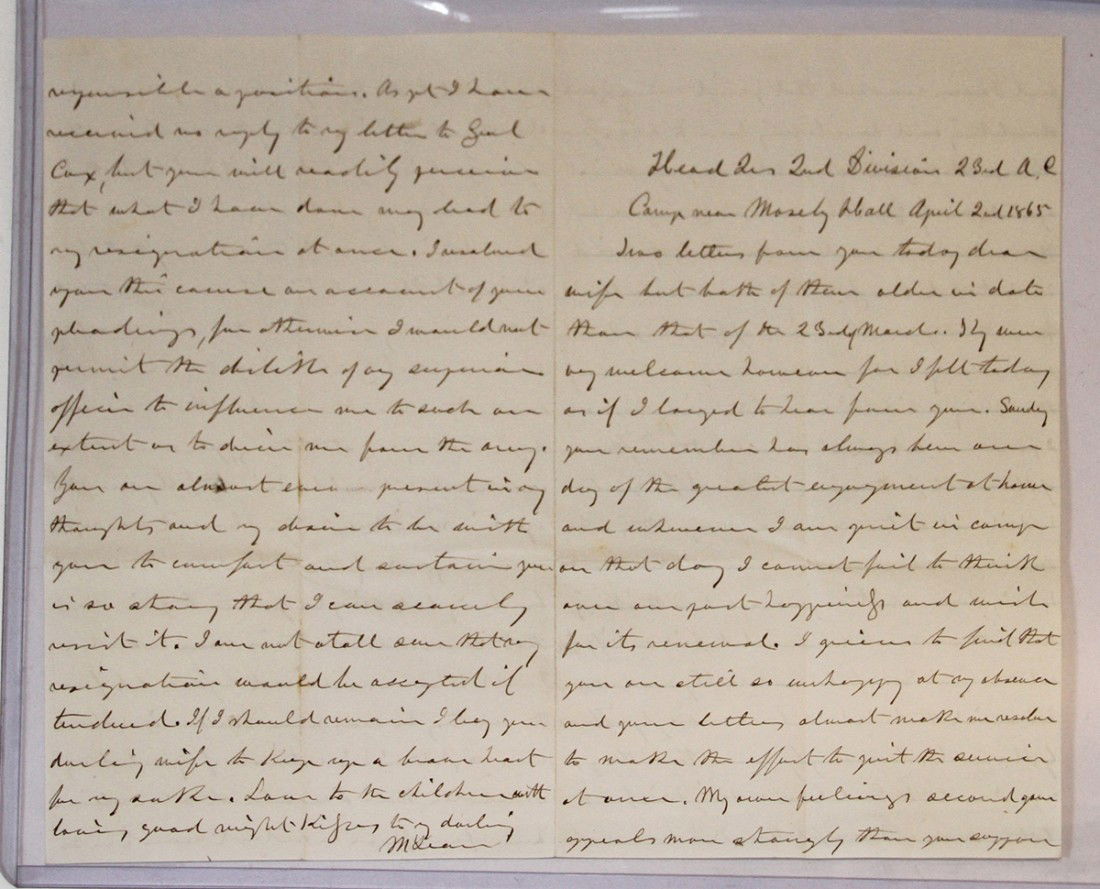 Head Qrs 2nd Division 23rd A.C
Camp near Mosely Hall April 2nd 1865
Two letters from you today dear
wife but both of them older in date
than that of the 23rd of March. They were
very welcome however for I felt today
as if I longed to hear from you. Sunday
you remember has always been our
day of the greatest enjoyment at home
and whenever I am quiet in camp
on that day I cannot fail to think
over our past happiness and wish
for its renewal. I grieve to find that
you are still so unhappy at my absence
and your letters almost make me resolve
to make the effort to quit the service
at once. My own feelings second your
appeals more strongly than you suppose
responsible a position. As yet I have
received no reply to my letter to Genl
Cox, but you will readily perceive
that what I have done may lead to
my resignation at once. I resolved
upon this course on account of your
pleadings, for otherwise I would not
permit the dislike of any superior
officer to influence me to such an
extent as to drive me from the army.
You are almost ever present in my
thoughts and my desire to be with
you to comfort and sustain you
is so strong that I can scarcely
resist it. I am not at all sure that my
resignation would be accepted if
tendered. If I should remain I beg you
darling wife to keep up a brave heart
for my sake. Love to the children with
loving good night kisses to my darling
McLean